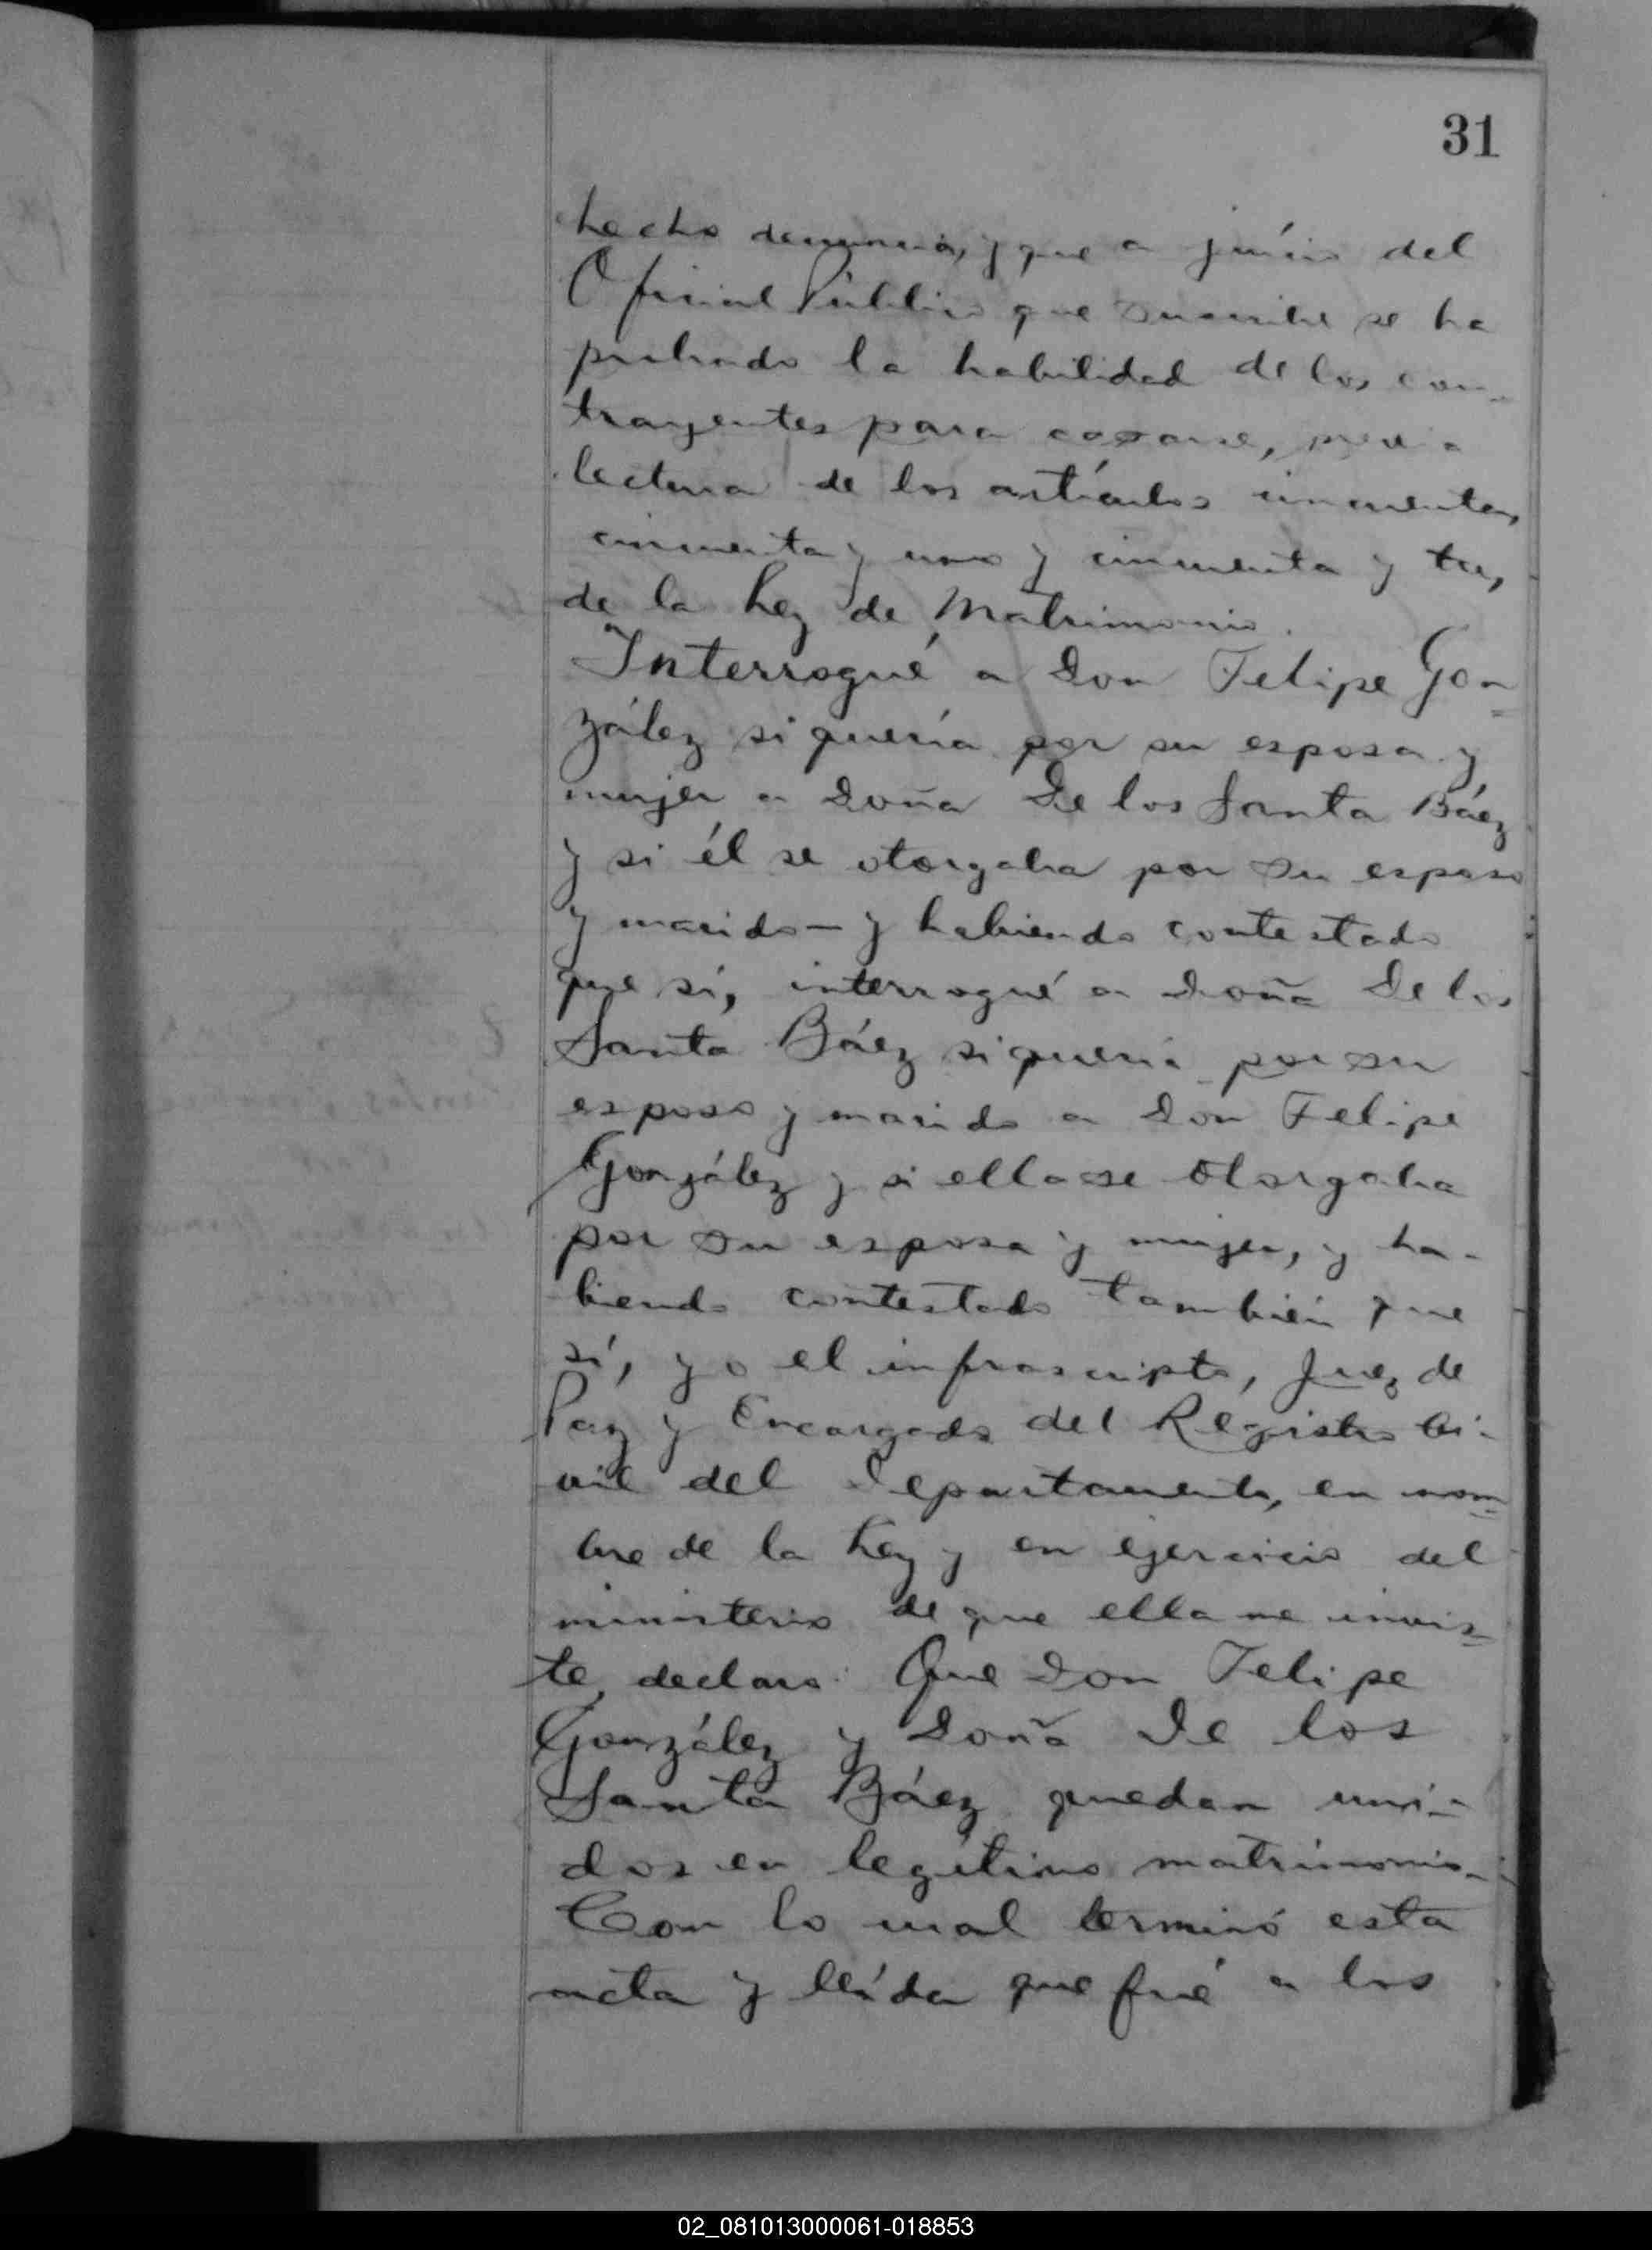 31
hecho denuncia, y que a juicio del
Oficial Público que suscribe se ha
probado la habilidad de los con-
trayentes para casarse, previa
lectura de los artículos cincuenta,
cincuenta y uno y cincuenta y tres,
de la Ley de Matrimonio.
Interrogué a Don Felipe Gon
zález si quería por su esposa y
mujer a Doña De los Santa Báez
y si él se otorgaba por su esposo
y marido — y habiendo contestado
que sí, interrogué a Doña De los
Santa Báez si quería por su
esposo y marido a Don Felipe
González y si ella se otorgaba
por su esposa y mujer, y ha-
biendo contestado también que
sí, yo el infrascripto, Juez de
Paz y Encargado del Registro Ci-
vil del Departamento, en nom
bre de la Ley y en ejercicio del
ministerio de que ella me invis-
te, declaro: Que Don Felipe
González y Doña De los
Santa Báez quedan uni-
dos en legítimo matrimonio.-
Con lo cual terminó esta
acta y leída que fué a los
02_081013000061-018853